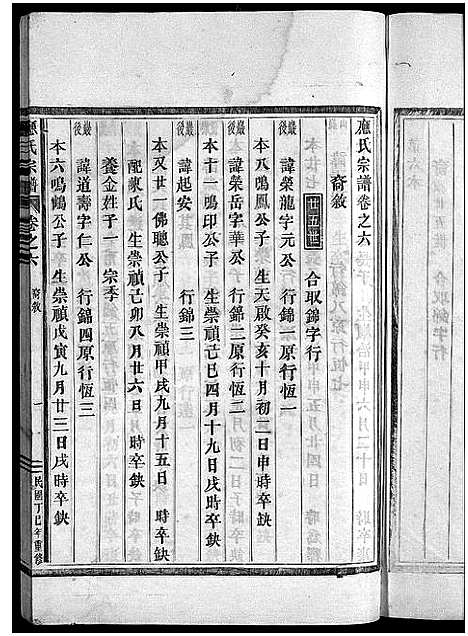 應氏宗譜卷之六
裔敘
廿五世 合取錦字行
巖後 諱榮龍字元公 行錦一原行恆一
本八鳴鳳公子 生天啟癸亥十月初二日申時卒缺
巖後 諱榮岳字華公 行錦二原行恆二
本十一鳴印公子 生崇禎己巳四月十九日戌時卒缺
巖後 諱起安 行錦三
本又廿一佛聰公子 生崇禎甲戌九月十五日 時卒缺
配陳氏 生崇禎己卯八月廿六日 時卒缺
養金姓子一 宗季
巖後 諱道壽字仁公 行錦四原行恆三
本六鳴鶴公子 生崇禎戊寅九月廿三日戌時卒缺
應氏宗譜 卷之六 裔敘 一 民國丁巳年重修